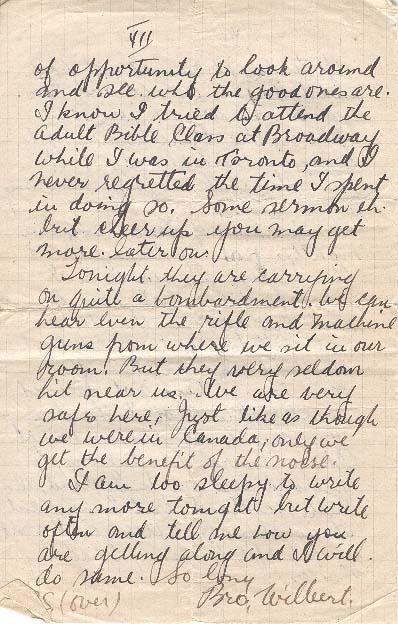 VII
of opportunity to look around
and see who the good ones are.
I know I tried to attend the
Adult Bible Class at Broadway
while I was in Toronto, and I
never regretted the time I spent
in doing so. Some sermon eh.
but cheer up you may get
more later on.
Tonight they are carrying
on quite a bombardment. we can
hear even the rifle and machine
guns from where we sit in our
room. But they very seldom
hit near us. We are very
safe here, Just like as though
we were in Canada, only we
get the benefit of the noise.
I am too sleepy to write
any more tonight but write
often and tell me how you
are getting along and I will
do same. So long
Bro, Wilbert.
PS (over)